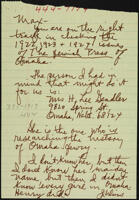 444-7174
Mary -
You are on the right
track in checking the
1922, 1923 + 1924 issues
of The Jewish Press of
Omaha
The person I had in
mind that might do it
for us is
Mrs H. Lee Gendler
9820 Spring
Omaha, Nebr. 68124
She is the one who is
researching the history
of Omaha Jewry.
I don't know her, but then
I don't know her maiden
name. And I didn't
know every girl in Omaha
Henry